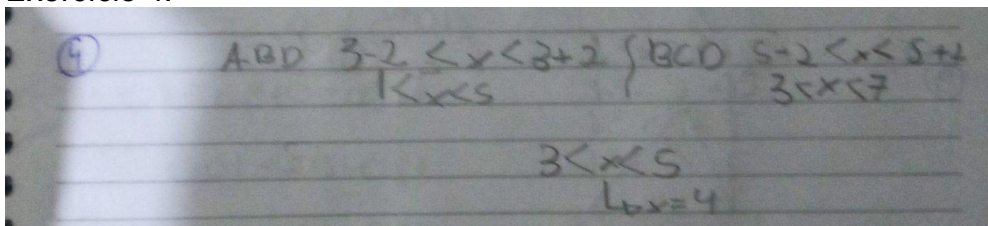 ④ ABD 3-2 < x < 3+2 { BCD 5-2 < x < 5+2
1 < x < 5 3 < x < 7
3 < x < 5
↳ x = 4